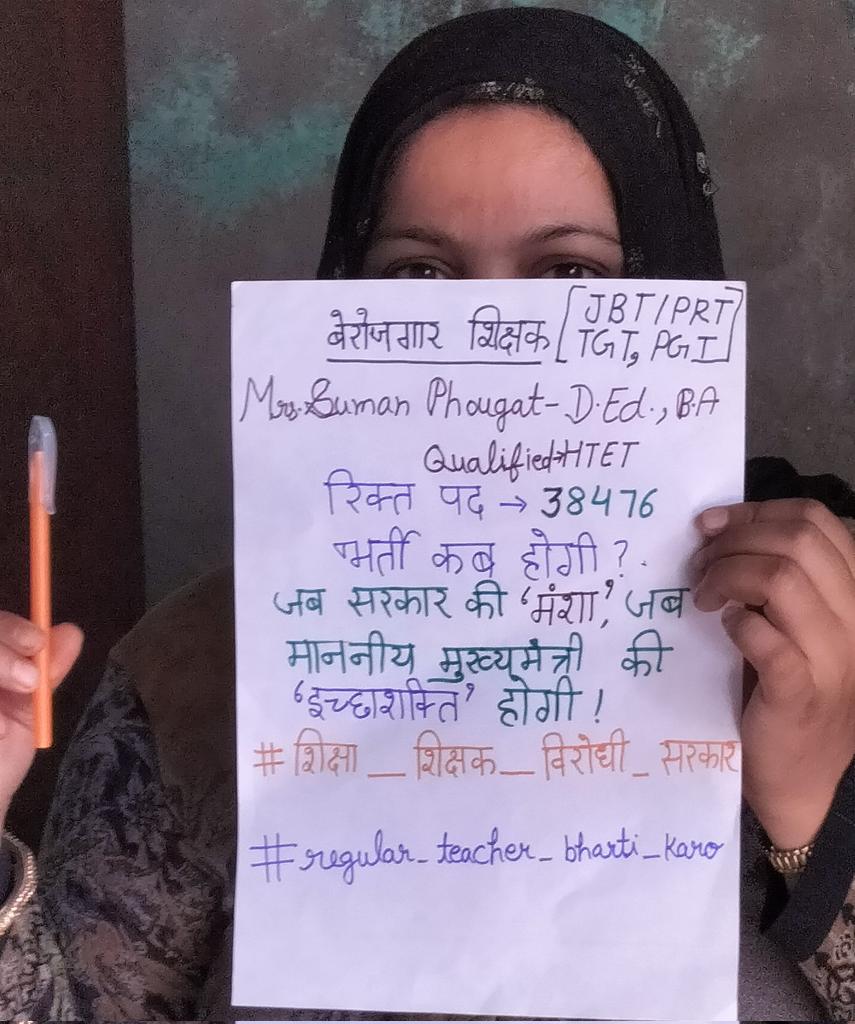 बेरोजगार शिक्षक [JBT/PRT
TGT, PGT]
Mrs. Suman Phougat - D.Ed., B.A
Qualified→HTET
रिक्त पद → 38476
भर्ती कब होगी ?
जब सरकार की 'मंशा', जब
माननीय मुख्यमंत्री की
'इच्छाशक्ति' होगी !
#शिक्षा_शिक्षक_विरोधी_सरकार
#regular_teacher_bharti_karo